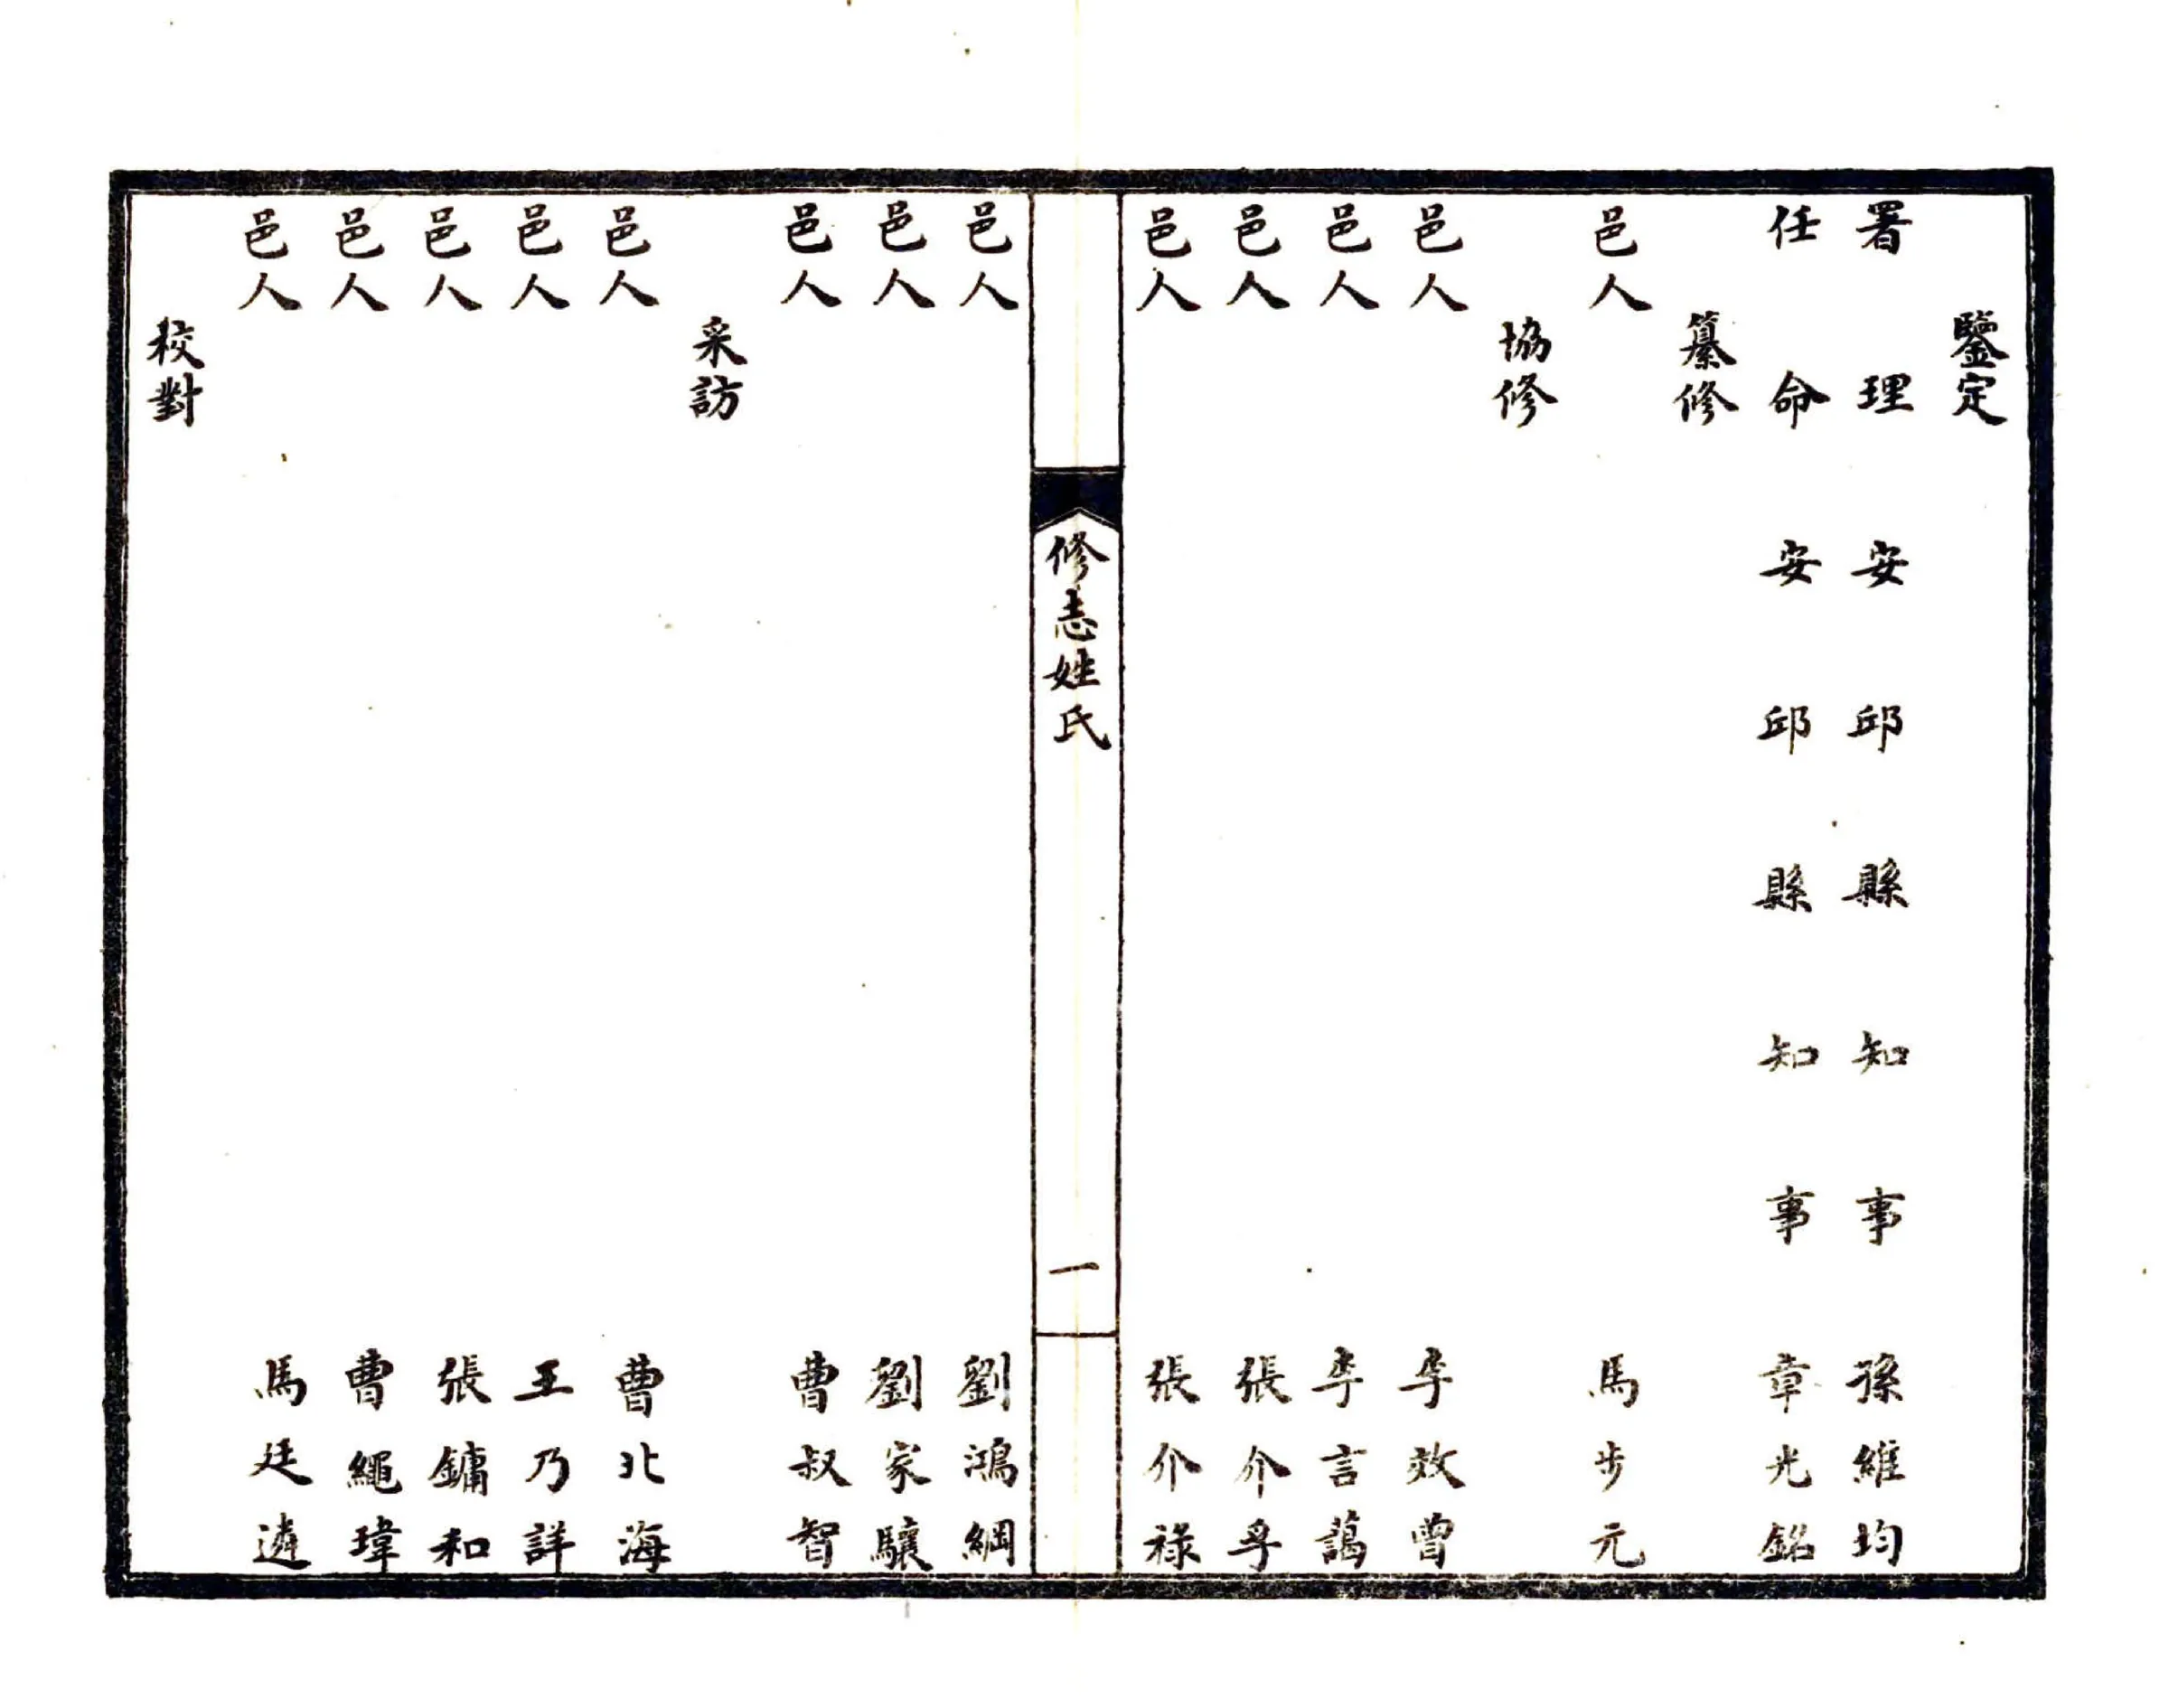 鑒定
署理安邱縣知事孫維均
任命安邱縣知事章光銘
纂修
邑人馬步元
協修
邑人李效曾
邑人李言藹
邑人張介孚
邑人張介祿
修志姓氏
一
邑人劉鴻綱
邑人劉家驤
邑人曹叔智
采訪
邑人曹北海
邑人王乃詳
邑人張鏞和
邑人曹繩瑋
邑人馬廷遴
校對